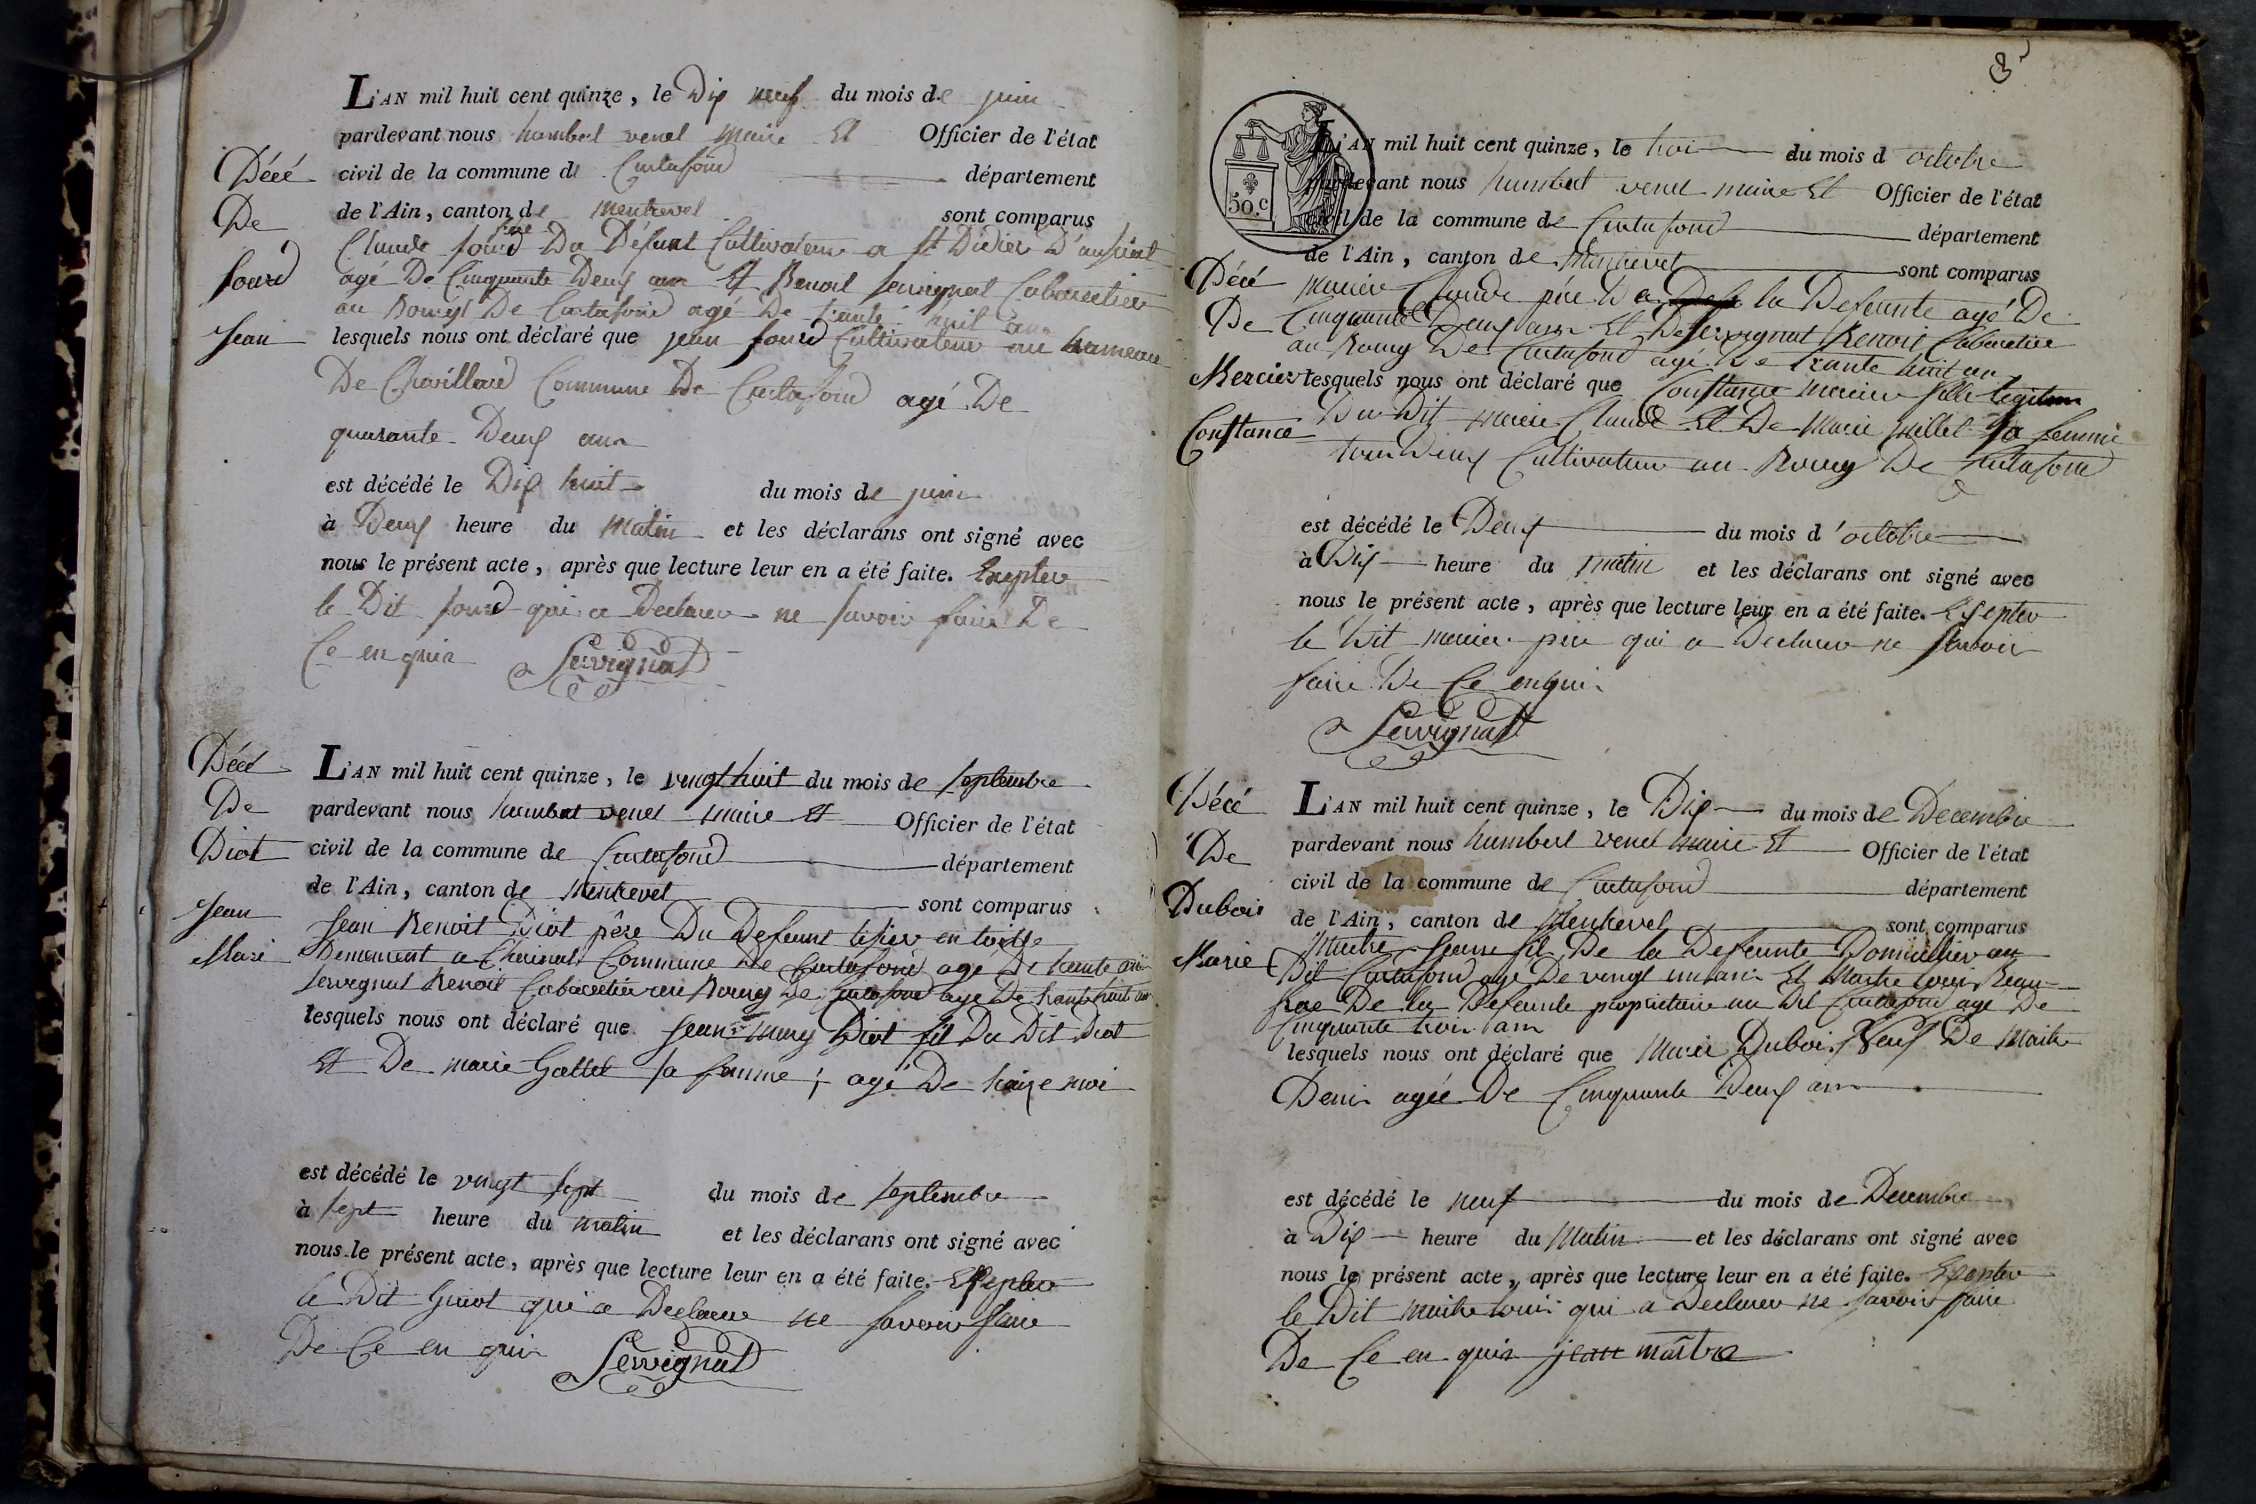 L'AN mil huit cent quinze, le Dix neuf du mois de juin
pardevant nous humbert venet maire Et Officier de l'état
civil de la commune de Curtafond département
de l'Ain, canton de Montrevel sont comparus
Décé
De
Fourd
Jean
Claude fourd frere Du Défunt Cultivateur a St Didier D'aussiat
agé De Cinquante Deux ans Et Benoit Servignat Cabaretier
au Bourg De Curtafond agé De trante huit ans
lesquels nous ont déclaré que jean fourd Cultivateur au hameau
De Chavillard Commune De Curtafond agé De
quarante Deux ans
est décédé le Dix huit du mois de juin
à Deux heure du Matin et les déclarans ont signé avec
nous le présent acte, après que lecture leur en a été faite. Exepter
le Dit fourd qui a Declarer ne savoir faire De
Ce enquis Servignat
Décé
De
Diot
Jean
Marie
L'AN mil huit cent quinze, le vingt huit du mois de septembre
pardevant nous humbert venet maire Et Officier de l'état
civil de la commune de Curtafond département
de l'Ain, canton de Montrevel sont comparus
Jean Benoit Diot père Du Defunt tisier en toille
Demeurant a Commune De Curtafond agé De trante ans
Servignat Benoit Cabaretier au Bourg De Curtafond agé De trante huit ans
lesquels nous ont déclaré que Jean Diot fil Du Dit Diot
Et De marie Gallet sa famme; agé De traize moi
est décédé le vingt sept du mois de septembre
à sept heure du matin et les déclarans ont signé avec
nous le présent acte, après que lecture leur en a été faite. Exsepter
le Dit qui a Declarer ne savoir faire
De Ce en quis Servignat
3
50.c
L'AN mil huit cent quinze, le troi du mois d octobre
pardevant nous humbert venet maire Et Officier de l'état
civil de la commune de Curtafond département
de l'Ain, canton de Montrevel sont comparus
Décé
De
Mercier
Constance
mercier Claude père De la Defeunte agé De
Cinquante Deux ans Et De Servignat Benoit Cabaretier
au Bourg De Curtafond agé De trante huit ans
lesquels nous ont déclaré que Constance mercier fille legitime
Du Dit mercier Claude Et De Marie millet sa femme
tous Deux Cultivateur au Bourg De Curtafond
est décédé le Deux du mois d'octobre
à Dix heure du matin et les déclarans ont signé avec
nous le présent acte, après que lecture leur en a été faite. Exsepter
le Dit mercier père qui a Declarer ne savoir
faire De Ce enquis
Servignat
Décé
De
Dubois
Marie
L'AN mil huit cent quinze, le Dix du mois de Decembre
pardevant nous humbert venet maire Et Officier de l'état
civil de la commune de Curtafond département
de l'Ain, canton de Montrevel sont comparus
Maitre Jean fil De la Defeunte Domicilier au
Dit Curtafond agé De vingt un ans Et Maitre Louis Beau-
frae De la Defeunte propriétaire au Dit Curtafond agé De
Cinquante trois ans
lesquels nous ont déclaré que Marie Dubois Veuf De Maitre
Denis agée De Cinquante Deux ans
est décédé le neuf du mois de Decembre
à Dix heure du Matin et les déclarans ont signé avec
nous le présent acte, après que lecture leur en a été faite. Exepter
le Dit maitre Louis qui a Declarer ne savoir faire
De Ce en quis jean maître